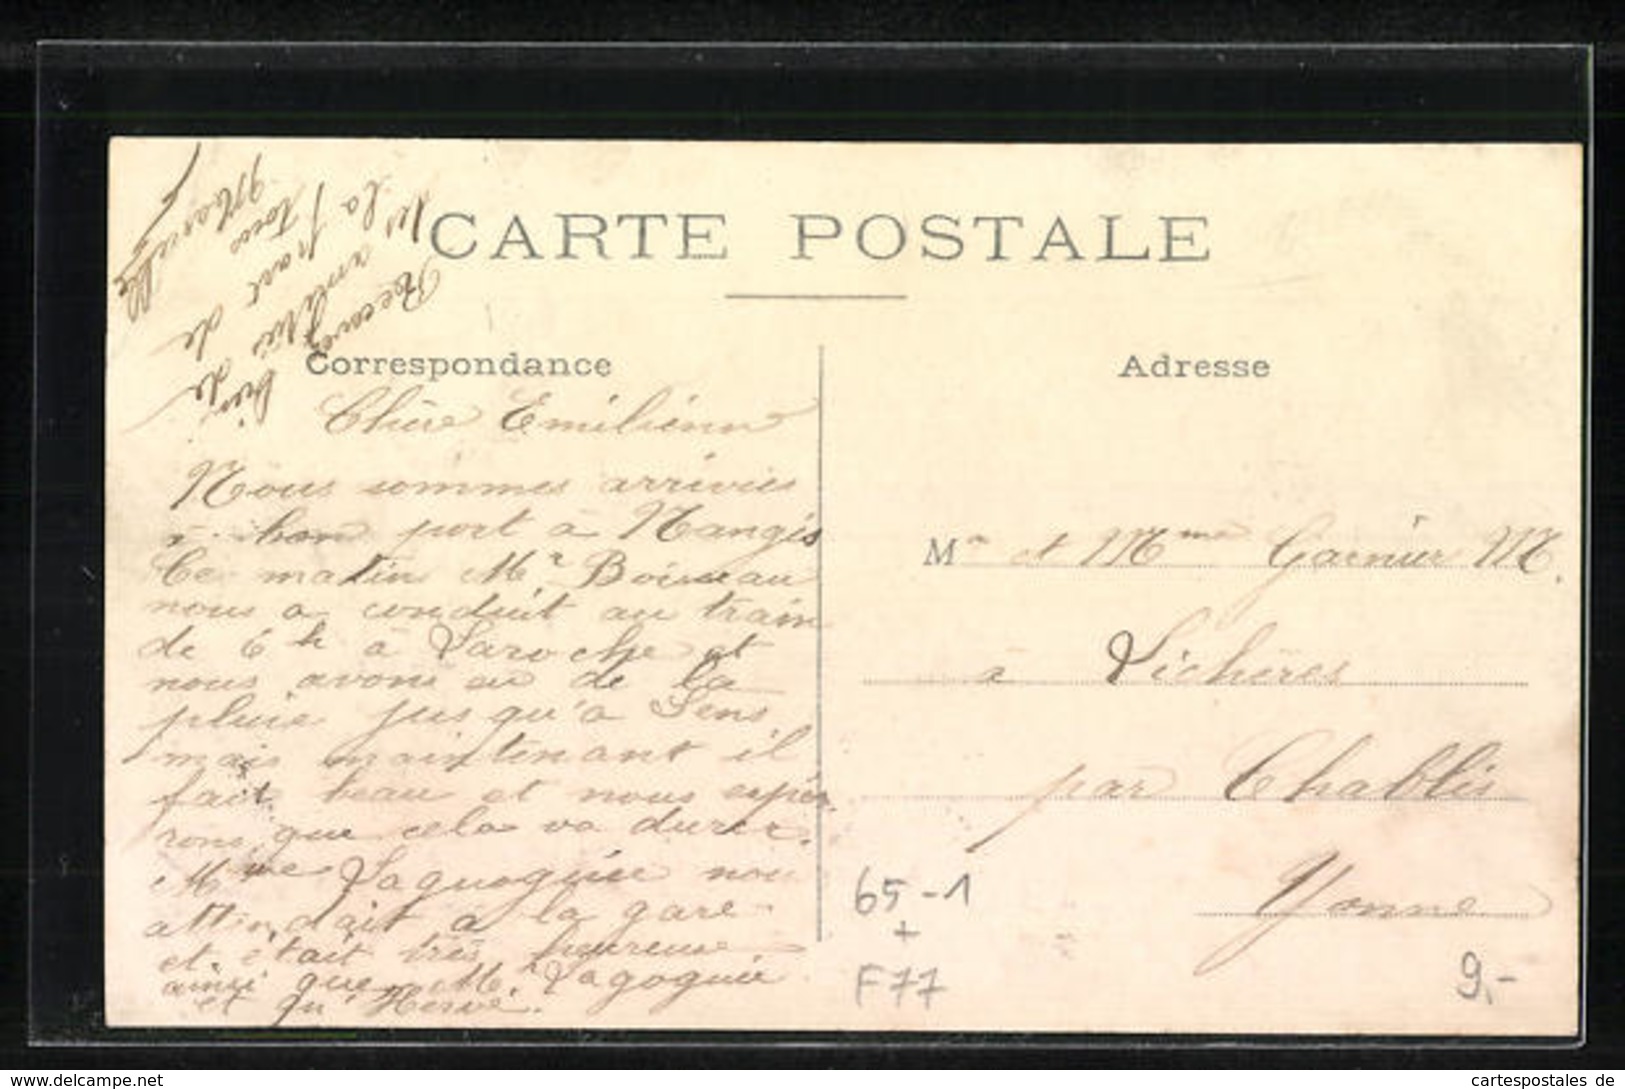 CARTE POSTALE
Correspondance
Adresse
Chère Emilienne
Nous sommes arrivées
à bon port à Nangis
Ce matin Mr Boisseau
nous a conduit au train
de 6h à Laroche et
nous avons eu de la
pluie jusqu'à Sens
mais maintenant il
fait beau et nous espé
rons que cela va durer.
Mme Lagoguée nous
attendait à la gare
et était très heureuse
ainsi que Mr Lagoguée
et qu'Hervé.
Recevez bien
des amitiés de
la part de
tous
Marcelle
Mr et Mme Garnier M.
à Lichères
par Chablis
Yonne
65-1
+
F77
9,-
delcampe.net
cartespostales de